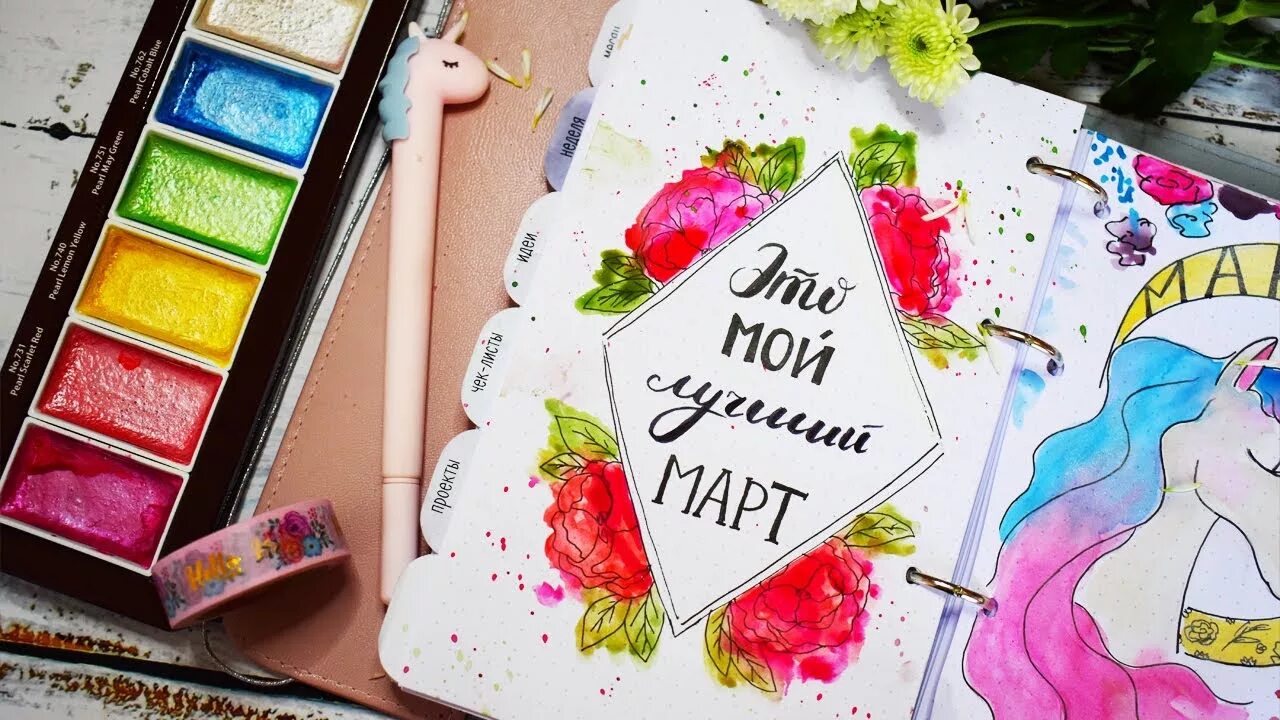 No.762
Pearl Cobalt Blue
No.751
Pearl May Green
No.740
Pearl Lemon Yellow
No.731
Pearl Scarlet Red
Hello
неделя
идеи
чек-листы
проекты
Это
мой
лучший
МАРТ
МАР